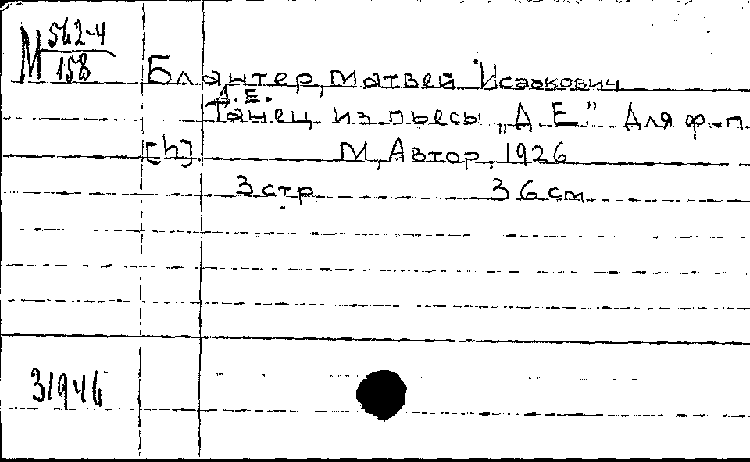 М 562-4
158
Блантер, Матвей Исаакович
Д. Е.
Танец из пьесы „Д. Е" Для ф.-п.
[h] М, Автор, 1926
3 стр 36 см
31946